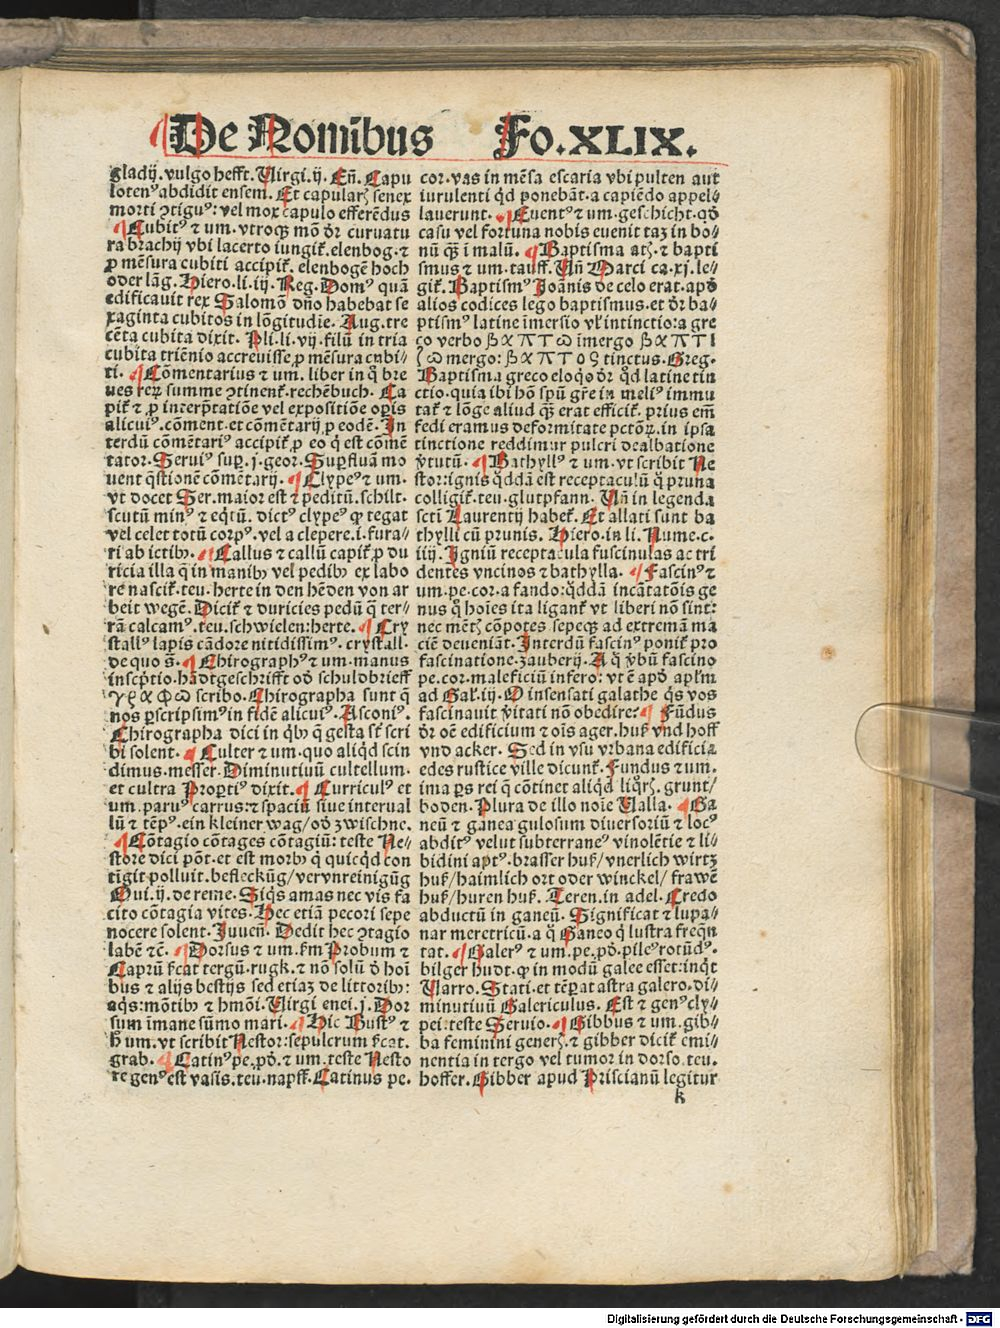 De Nomībus Fo.XLIX.
gladij. vulgo hefft. Uirgi. ij. Eñ. Capu
loten⁹ abdidit ensem. Et capularꝭ senex
morti ꝯtigu⁹: vel mox capulo efferēdus
¶Cubit⁹ ⁊ um. vtroqꝫ mō ðr curuatu
ra brachij vbi lacerto iungit̃. elenbog. ⁊
ꝓ mēsura cubiti accipit̃. elenbogē hoch
oder lāg. Hiero. li. iij. Reg. Dom⁹ quā
edificauit rex Salomō dño habebat se
xaginta cubitos in lōgitudīe. Aug. tre
cēta cubita dixit. Pli. li. vij. filū in tria
cubita triēnio accreuisse ꝓ mēsura cubi⸗
ti. ¶Cōmentarius ⁊ um. liber in q̄ bre
ues reꝝ summe ꝯtinent̃. rechēbuch. Ca
pit̃ ⁊ ꝓ incerp̄tatiōe vel expositiōe oꝑis
alicui⁹. cōment. et cōmētarij ꝓ eodē. In
terdū cōmētari⁹ accipit̃ ꝓ eo q̇ est cōmē
tator. Serui⁹ suꝑ. j. geor. Suꝑfluā mo
uent q̄stionē cōmētarij. ¶Clype⁹ ⁊ um.
vt docet Ser. maior est ⁊ peditū. schilt.
scutū min⁹ ⁊ eq̇tū. dict⁹ clype⁹ ꝙ tegat
vel celet totū corp⁹. vel a clepere. i. fura⸗
ri ab ictibꝰ. ¶Callus ⁊ callū capit̃ ꝓ du
ricia illa q̄ in manibꝰ vel pedibꝰ ex labo
re nascit̃. teu. herte in den hēden von ar
beit wegē. Dicit̃ ⁊ duricies pedū q̄ ter⸗
rā calcam⁹. teu. schwielen: herte. ¶Cry
stall⁹ lapis cādore nitidissim⁹. crystall.
de quo s̄. ¶Chirograph⁹ ⁊ um. manus
inscp̄tio. hādtgeschrifft oð schuldbrieff
γραφω scribo. Chirographa sunt q̄
nos ꝑscripsim⁹ in fidē alicui⁹. Asconi⁹.
Chirographa dici in q̇bꝰ q̄ gesta st̄ scri
bi solent. ¶Culter ⁊ um. quo aliq̇d scin
dimus. messer. Diminutiuū cultellum.
et cultra Proꝑti⁹ dixit. ¶Curricul⁹ et
um. paru⁹ carrus: ⁊ spaciū siue interual
lū ⁊ tēp⁹. ein kleiner wag/ oð zwischne.
¶Cōtagio cōtages cōtagiū: teste Ne⸗
store dici pōt. et est morbꝰ q̇ quicq̇d con
tīgit polluit. befleckūg/ vervnreinigūg
Oui. ij. de reme. Siq̇s amas nec vis fa
cito cōtagia vites. Hec etiā pecori sepe
nocere solent. Juueñ. Dedit hec ꝯtagio
labē ⁊c̄. ¶Dorsus ⁊ um. s̄m Probum ⁊
Caprū s̄cat tergū. rugk. ⁊ nō solū ð hoī
bus ⁊ alijs bestijs sed etiaꝫ de littoribꝰ:
aq̇s: mōtibꝰ ⁊ hmōi. Uirgi enei. j. Dor
sum īmane sūmo mari. ¶Hic Bust⁹ ⁊
h̄ um. vt scribit Nestor: sepulcrum s̄cat.
grab. ¶Catin⁹ pe. ꝓð. ⁊ um. teste Nesto
re gen⁹ est vasis. teu. napff. Catinus pe.
cor. vas in mēsa escaria vbi pulten aut
iurulenti q̇d ponebāt. a capiēdo appel⸗
lauerunt. ¶Euent⁹ ⁊ um. geschicht. qð
casu vel fortuna nobis euenit taꝫ in bo⸗
nū qꝫ̄ ī malū. ¶Baptisma atꝭ. ⁊ bapti
smus ⁊ um. tauff. Uñ Marci ca. xj. le⸗
git̃. Baptism⁹ Joānis de celo erat. apð
alios codices lego baptismus. et ðr ba⸗
ptism⁹ latine īmersio vl̓ intinctio: a gre
co verbo βαπτω īmergo βαπτι
ζω mergo: βαπτος tinctus. Greg.
Baptisma greco eloq̇o ðr q̇d latine tin
ctio. quia ibi hō spū gr̄e in meli⁹ immu
tat̃ ⁊ lōge aliud qꝫ̄ erat efficit̃. prius em̄
fedi eramus deformitate pctōꝝ. in ipsa
tinctione reddimur pulcri dealbatione
v̓tutū. ¶Bathyll⁹ ⁊ um. vt scribit Ne
stor: ignis q̇ddā est receptaculū q̇ pruna
colligit̃. teu. glutpfann. Uñ in legenda
scti Laurentij habet̃. Et allati sunt ba
thylli cū prunis. Hiero. in li. Nume. c.
iiij. Igniū receptacula fuscinulas ac tri
dentes vncinos ⁊ bathylla. ¶Fascin⁹ ⁊
um. pe. cor. a fando: q̇ddā incātatōis ge
nus q̇ hoīes ita ligant̃ vt liberi nō sint:
nec mētꝭ cōpotes sepeqꝫ ad extremā ma
ciē deueniāt. Interdū fascin⁹ ponit̃ pro
fascinatione. zauberij. A q̇ v̓bū fascino
pe. cor. maleficiū infero: vt ē apð apl̓m
ad Gal̓. iij. O insensati galathe q̇s vos
fascinauit v̓itati nō obedire? ¶Fūdus
ðr oē edificium ⁊ oīs ager. huß vnd hoff
vnd acker. Sed in vsu vrbana edificia
edes rustice ville dicunt̃. Fundus ⁊ um.
ima ꝑs rei q̇ cōtinet aliq̇d liq̇rꝭ. grunt/
boden. Plura de illo noīe Ualla. ¶Ga
neū ⁊ ganea gulosum diuersoriū ⁊ loc⁹
abdit⁹ velut subterrane⁹ vinolētie ⁊ li⸗
bidini apt⁹. brasser huß/ vnerlich wirtz
huß/ haimlich ort oder winckel/ frawē
huß/ huren huß. Teren. in adel. Credo
abductū in ganeū. Significat ⁊ lupa⸗
nar meretricū. a q̇ Ganeo q̇ lustra freq̄n
tat. ¶Galer⁹ ⁊ um. pe. ꝓð. pile⁹ rotūd⁹.
bilger hudt. ꝙ in modū galee esset: inq̇t
Uarro. Stati. et tēꝑat astra galero. di⸗
minutiuū Galericulus. Est ⁊ gen⁹ cly⸗
pei. teste Seruio. ¶Gibbus ⁊ um. gib⸗
ba feminini generꝭ. ⁊ gibber dicit̃ emi⸗
nentia in tergo vel tumor in dorso. teu.
hoffer. Gibber apud Priscianū legitur
k
Digitalisierung gefördert durch die Deutsche Forschungsgemeinschaft - DFG